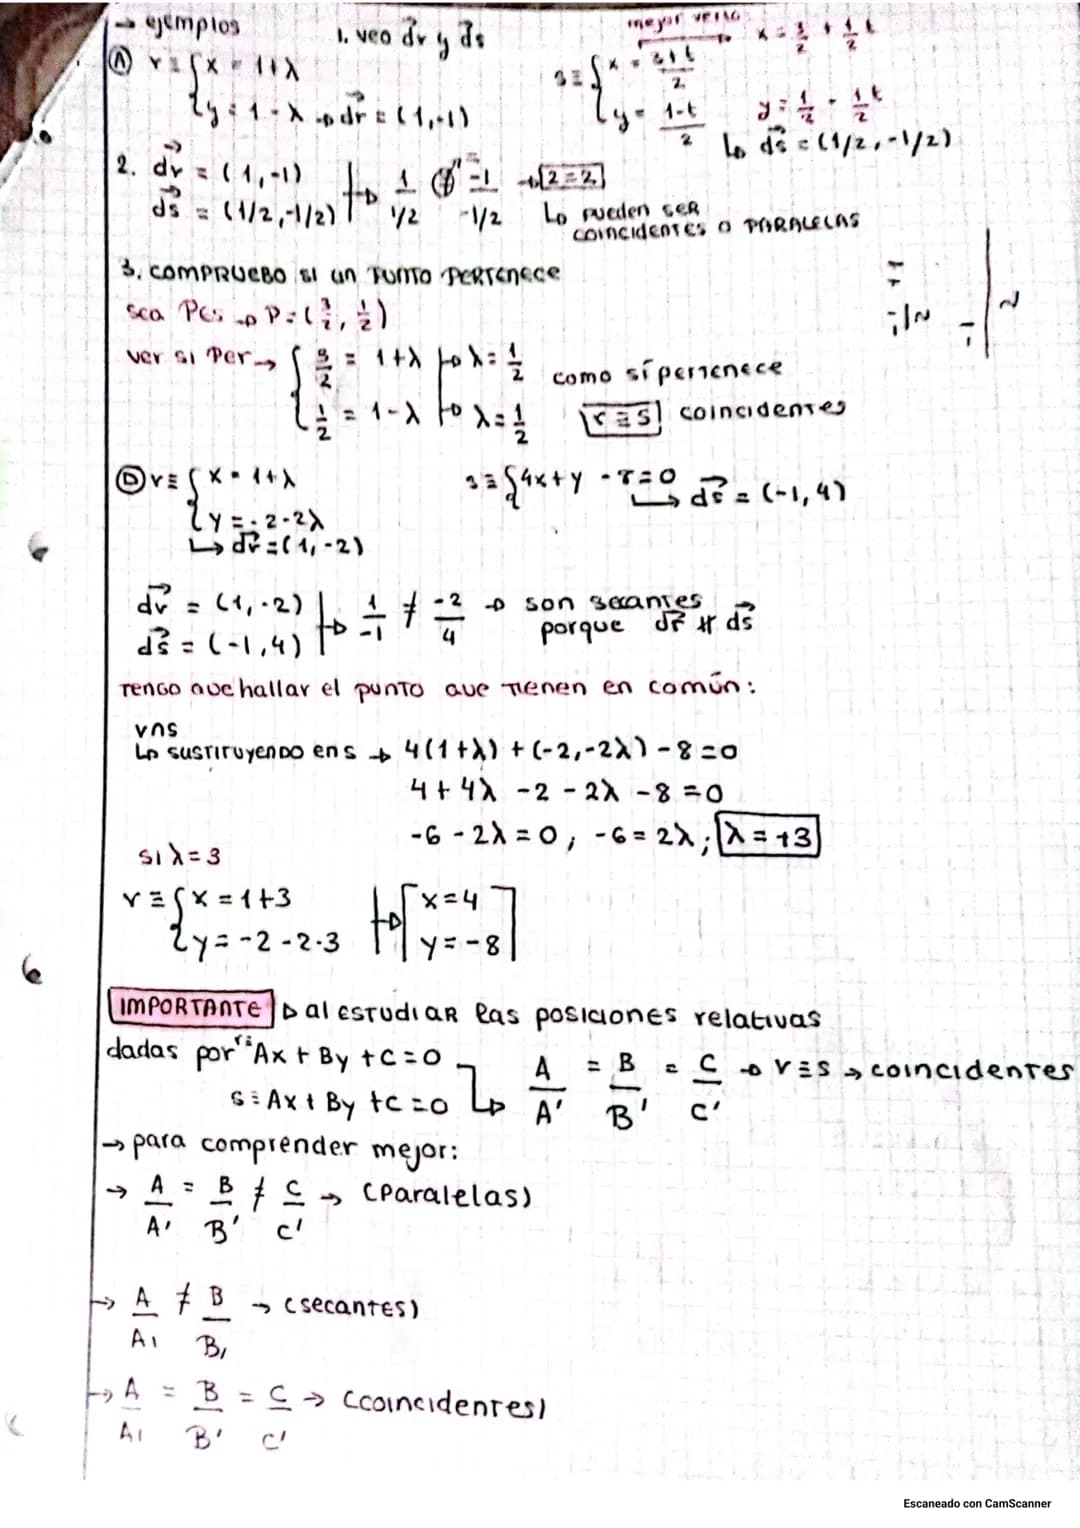 → ejemplos
1. veo dr y ds
Ⓐ r ≡ { x = 1+λ
y = 1-λ → dr = (1,-1)
s ≡ { x = 3+t / 2
y = 1-t / 2
x = 3/2 + 1/2 t
y = 1/2 - 1/2 t
↳ ds = (1/2, -1/2)
2. dr = (1,-1)
ds = (1/2,-1/2)
1 / 1/2 = -1 / -1/2 → 2=2
↳ pueden ser
coincidentes o PARALELAS
3. COMPRUEBO SI un PUNTO PERTENECE
sea P∈s → P=(3/2, 1/2)
ver si P∈r → { 3/2 = 1+λ → λ = 1/2
1/2 = 1-λ → λ = 1/2
como sí pertenece
r ≡ s coincidentes
Ⓓ r ≡ { x = 1+λ
y = -2-2λ
↳ dr = (1,-2)
s ≡ { 4x+y -8=0
↳ ds = (-1,4)
dr = (1,-2)
ds = (-1,4)
1/-1 ≠ -2/4 → son secantes
porque dr ∦ ds
TENGO que hallar el punto que tienen en común:
r∩s
↳ sustituyendo en s → 4(1+λ) + (-2,-2λ) -8=0
4+4λ -2-2λ -8=0
-6-2λ=0; -6=2λ; λ=+3
si λ=3
r ≡ { x = 1+3
y = -2-2·3
x=4
y=-8
IMPORTANTE ▷ al ESTUDIAR las posiciones relativas
dadas por r: Ax + By +C=0
s: Ax+ By +C=0 ↳ A/A' = B/B' = C/C' → r≡s → coincidentes
→ para comprender mejor:
→ A/A' = B/B' ≠ C/C' → (Paralelas)
→ A/A₁ ≠ B/B₁ → (secantes)
→ A/A₁ = B/B' = C/C' → (coincidentes)
Escaneado con CamScanner